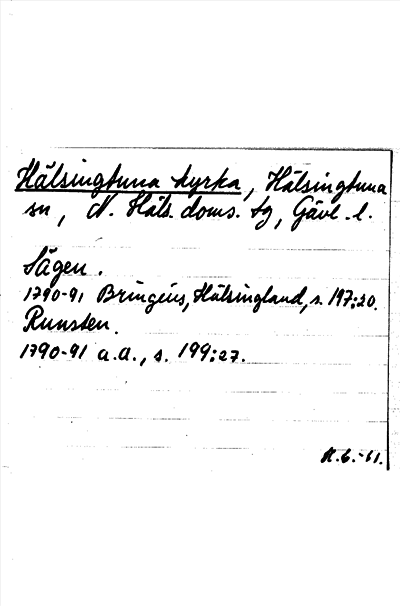 Hälsingtuna kyrka, Hälsingtuna
sn, N. Häls. doms. tg, Gävl. l.
Sägen.
1790-91 Bringéus, Hälsingland, s. 197:20.
Runsten.
1790-91 a.a., s. 199:27.
K.G.-61.